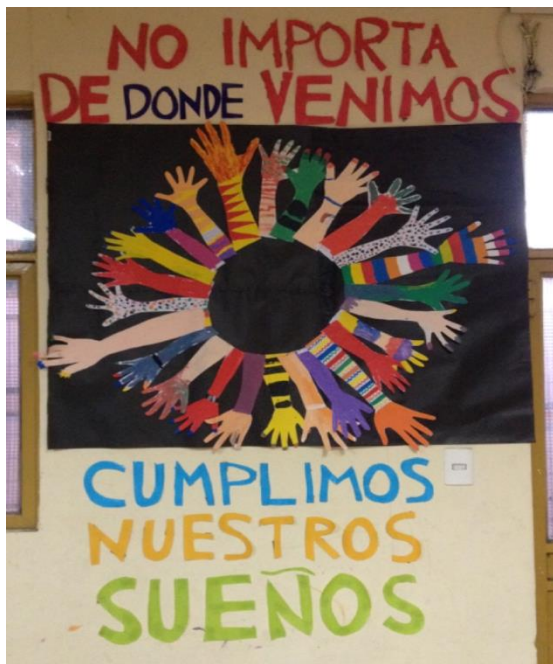 NO IMPORTA
DE DONDE VENIMOS
CUMPLIMOS
NUESTROS
SUEÑOS